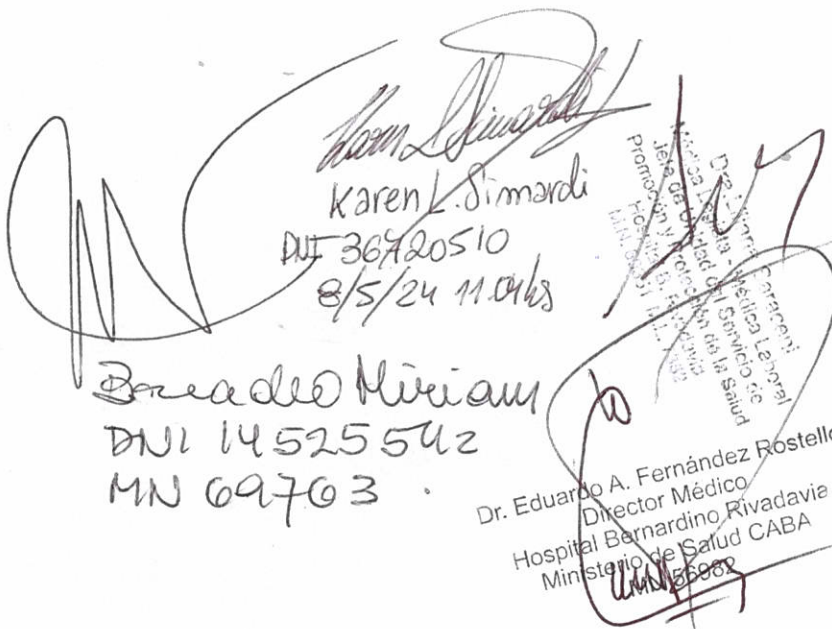 Karen L. Simardi
DNI 36720510
8/5/24 11.04hs
Miriam
DNI 14525542
MN 69763.
Caraceni
Médica Laboral
Jefa de Unidad del Servicio de
Promoción y Protección de la Salud
Dr. Eduardo A. Fernández Rostello
Director Médico
Hospital Bernardino Rivadavia
Ministerio de Salud CABA
56982